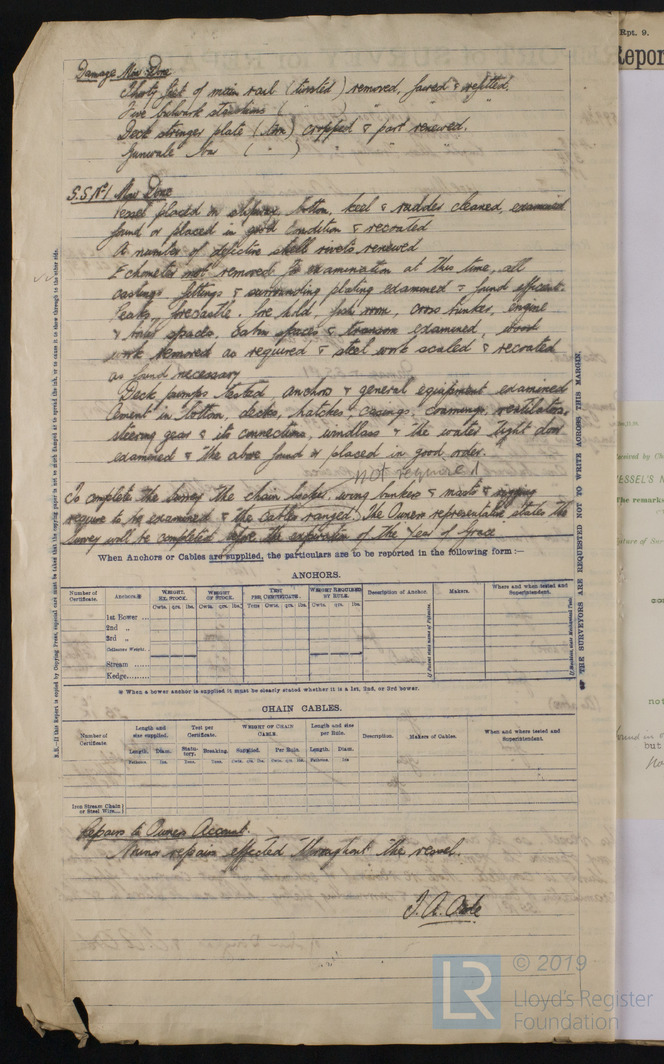 Damage Now Done
Thirty feet of main rail (twisted) removed, faired & refitted.
Five bulwark stanchions ( " ) " " "
Deck stringer plate (torn) cropped & part renewed.
Gunwale bar ( " ) " " "
S.S. No 1 Now Done
Vessel placed on slipway, bottom, keel & rudder cleaned, examined
found or placed in good condition & recoated
A number of defective shell rivets renewed
Echometer not removed for examination at this time, all
castings fittings & surrounding plating examined & found efficient.
Peaks, forecastle, fore hold, fish room, cross bunker, engine
& boiler spaces, cabin spaces & transom examined, wood
work removed as required & steel work scaled & recoated
as found necessary
Deck pumps tested anchors & general equipment examined
Cement in bottom, decks, hatches, casings, coamings, ventilators,
steering gear & its connections, windlass & the water tight door
examined & the above found or placed in good order.
not required
To complete the survey the chain locker, wing bunkers & masts & rigging
require to be examined & the cables ranged. The Owners representative states the
survey will be completed before the expiration of the Year of Grace
When Anchors or Cables are supplied, the particulars are to be reported in the following form:—
ANCHORS.
Number of Certificate. Anchors.* WEIGHT, EX. STOCK. WEIGHT OF STOCK. TEST PER CERTIFICATE. WEIGHT REQUIRED BY RULE. Description of Anchor. Makers. Where and when tested and Superintendent.
Cwts. qrs. lbs. Cwts. qrs. lbs. Tons Cwts. qrs. lbs. Cwts. qrs. lbs.
1st Bower ...
2nd "
3rd "
Collective Weight.
Stream ...
Kedge......
* When a bower anchor is supplied it must be clearly stated whether it is a 1st, 2nd, or 3rd bower.
CHAIN CABLES.
Number of Certificate Length and size supplied. Test per Certificate. WEIGHT OF CHAIN CABLE. Length and size per Rule. Description. Makers of Cables. When and where tested and Superintendent.
Length. Diam. Statutory. Breaking. Supplied. Per Rule. Length. Diam.
Fathoms. Ins. Tons. Tons. Cwts. qrs. lbs. Cwts. qrs. lbs. Fathoms. Ins
Iron Stream Chain or Steel Wire....
Repairs to Owners Account.
Minor repairs effected throughout the vessel.
THE SURVEYORS ARE REQUESTED NOT TO WRITE ACROSS THIS MARGIN.
Rpt. 9.
© 2019
LR
Lloyd's Register
Foundation